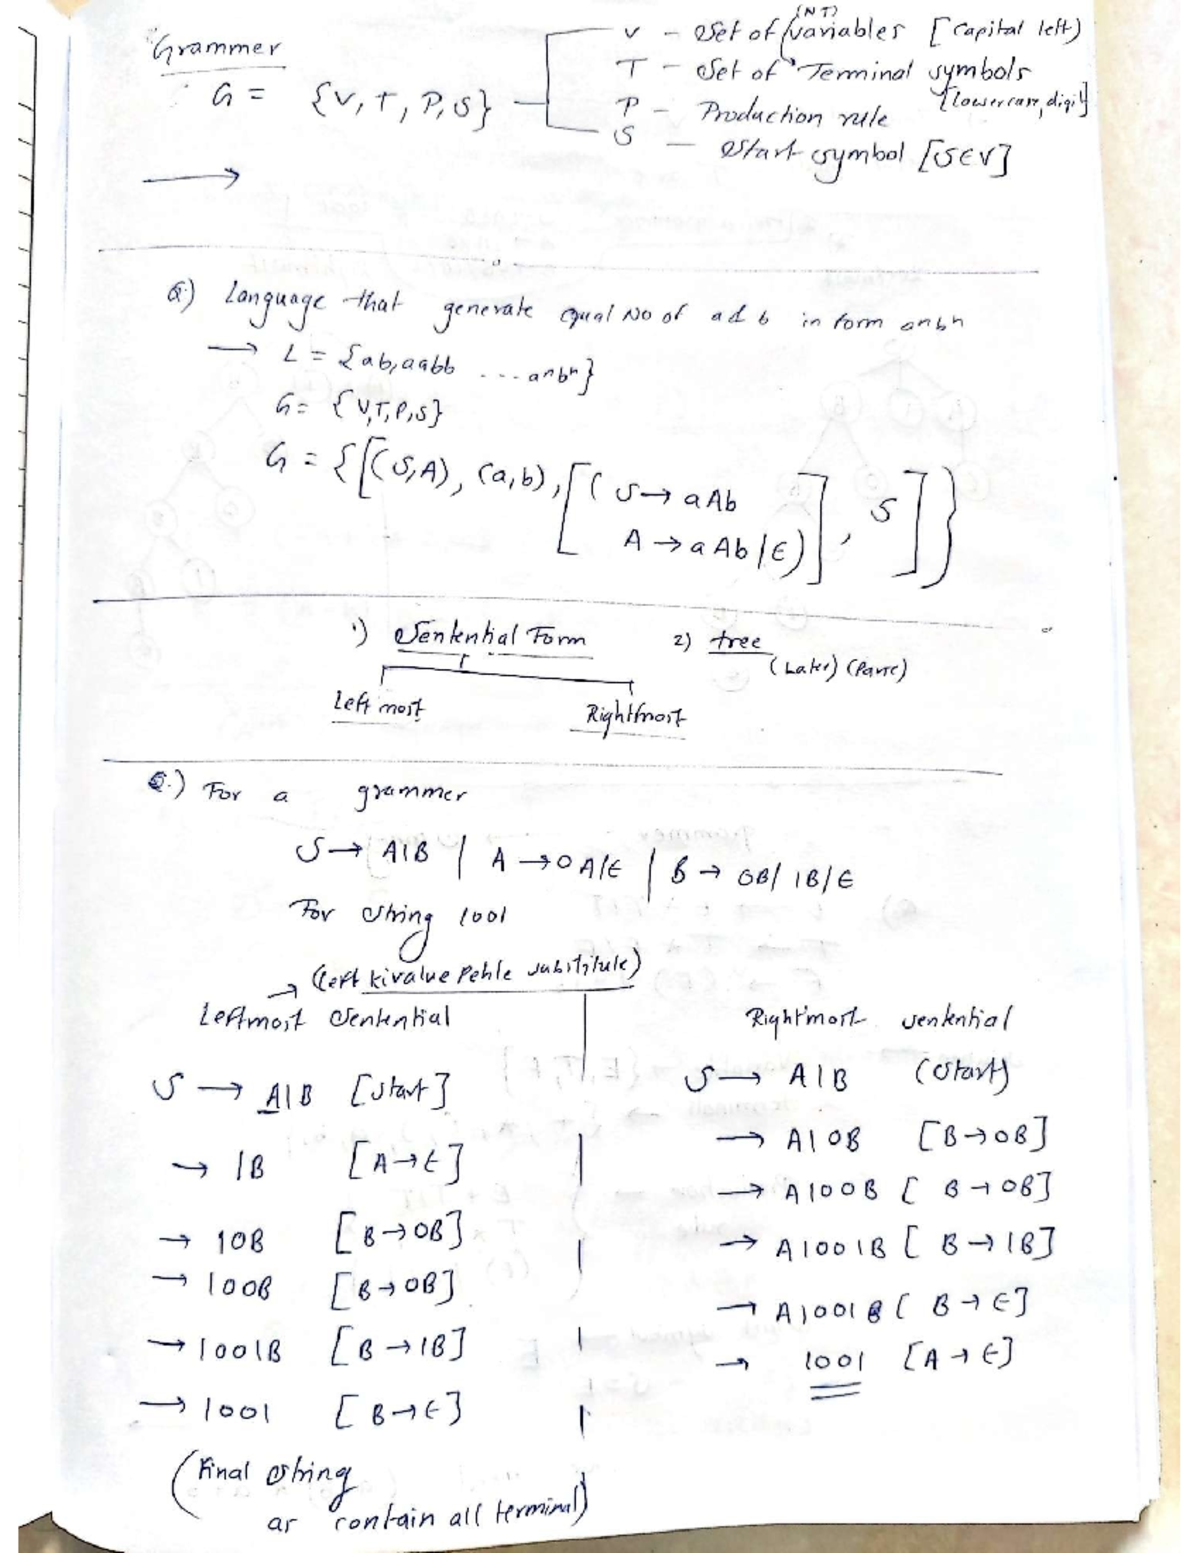 Grammer
G = {V, T, P, S}
V - Set of (variables [Capital left)
(NT)
T - Set of Terminal symbols
[lowercase, digit]
P - Production rule
S - Start symbol [S∈V]
→
Q.) Language that generate equal No of a d b in form anbn
→ L = {ab, aabb ... anbn}
G = {V,T,P,S}
G = {[(S,A), (a,b), [(S → aAb
A → aAb/∈)], S]}
1) Sentential Form 2) tree
(Later) (Parse)
Left most Rightmost
Q.) For a grammer
S → A1B | A → 0A/∈ | B → 0B/ 1B/∈
For string 1001
→ (left ki value Pehle substitute)
Leftmost Sentential
S → A1B [start]
→ 1B [A→∈]
→ 10B [B→0B]
→ 100B [B→0B]
→ 1001B [B→1B]
→ 1001 [B→∈]
(Final string
ar contain all terminal)
Rightmost sentential
S → A1B (start)
→ A10B [B→0B]
→ A100B [B→0B]
→ A1001B [B→1B]
→ A1001B [B→∈]
→ 1001 [A→∈]